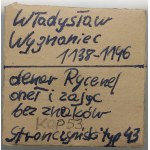 Władysław
Wygnaniec
1138-1146
denar Rycerz
oreł i zając
bez znaków
Kop 53
Stronczyński typ 43